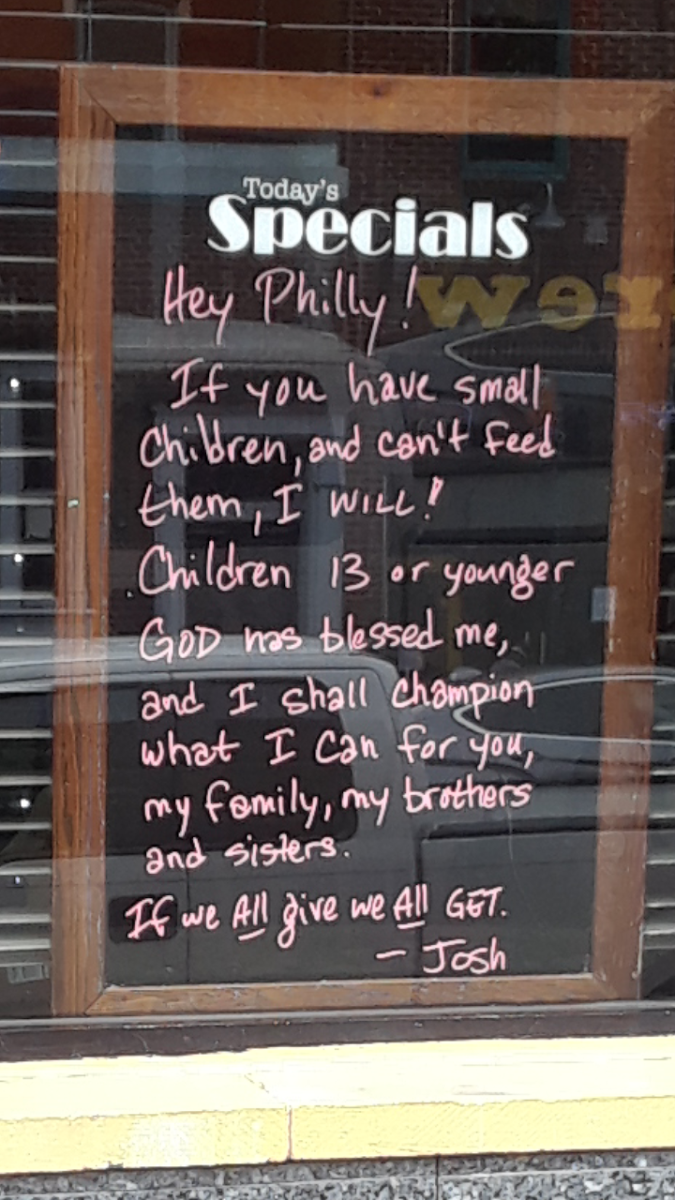 Today's
Specials
Hey Philly!
If you have small
Children, and can't feed
them, I WILL!
Children 13 or younger
GOD has blessed me,
and I shall champion
what I can for you,
my family, my brothers
and sisters.
If we All give we All GET.
- Josh